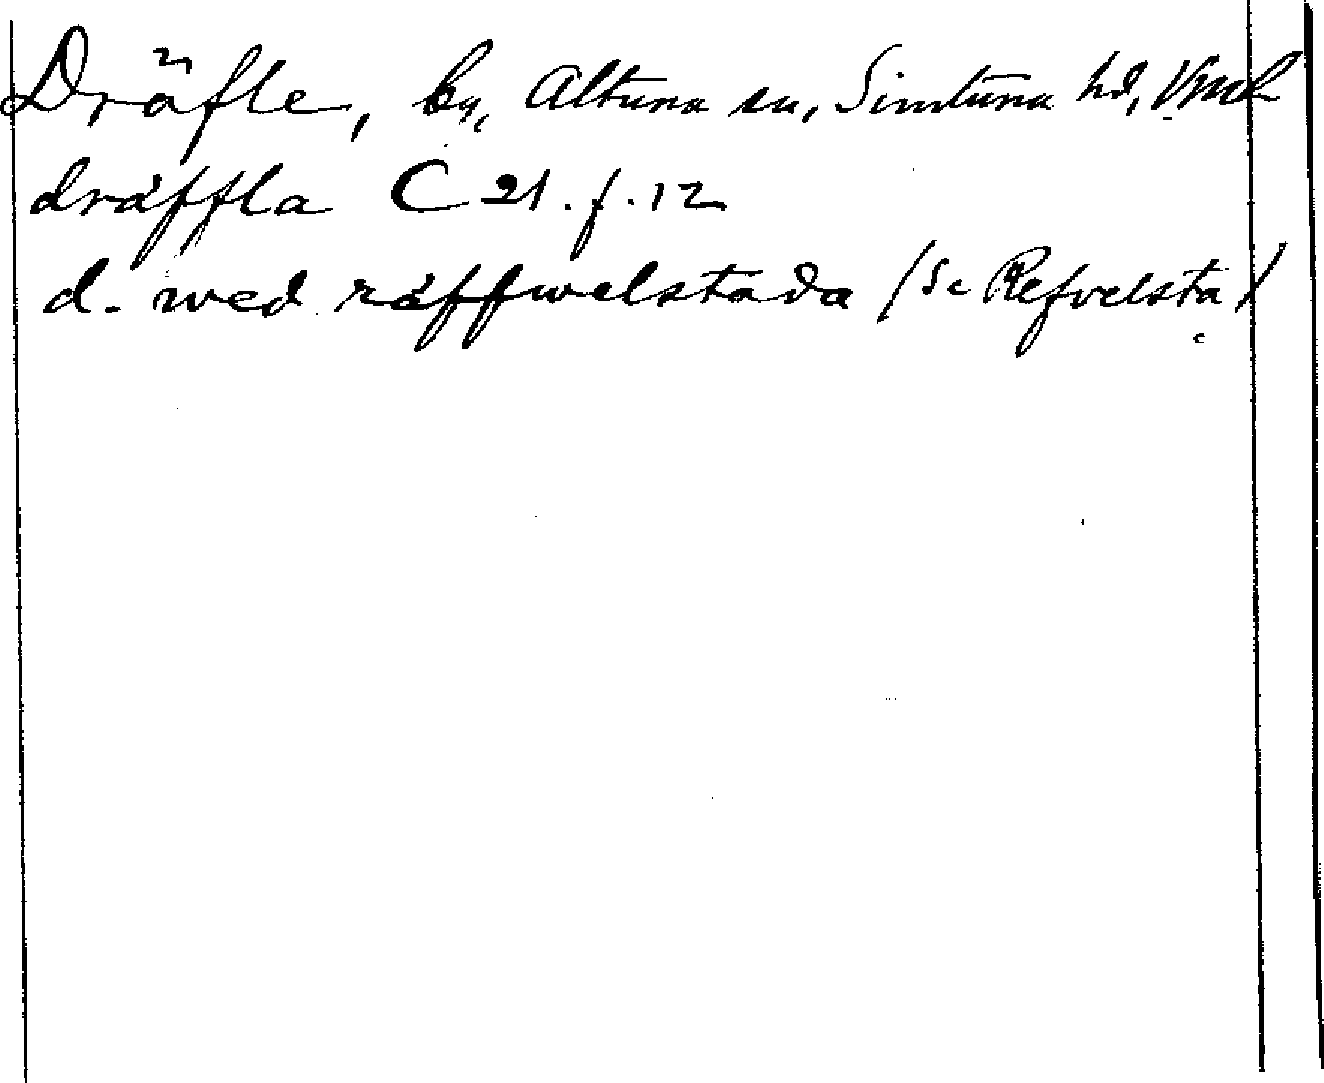 Dräfle, by, Altuna sn, Simtuna hd, Vml
dräffla C 21. f. 12
d. wed räffwelstada (se Refvelsta)